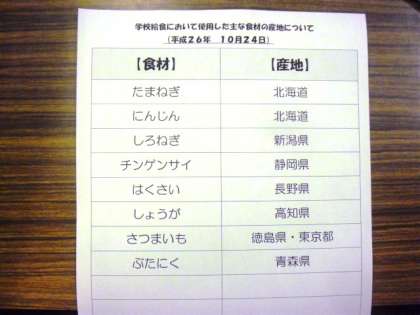 学校給食において使用した主な食材の産地について
(平成26年 10月24日)
【食材】 【産地】
たまねぎ 北海道
にんじん 北海道
しろねぎ 新潟県
チンゲンサイ 静岡県
はくさい 長野県
しょうが 高知県
さつまいも 徳島県・東京都
ぶたにく 青森県